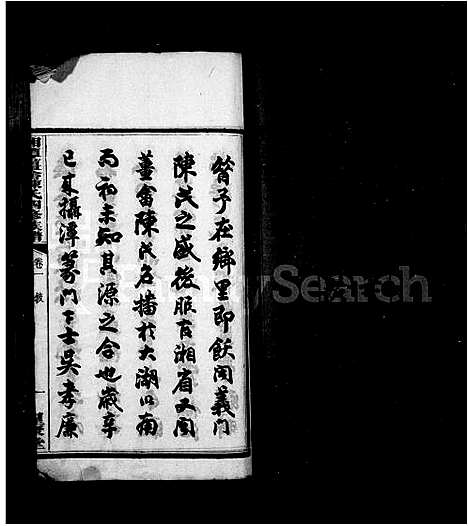 曾子在鄉里即飫聞義門
陳氏之盛後服官湘省又聞
董畬陳氏名播於大湖以南
而初未知其源之合也歲辛
巳來攝潭篆門下士吳孝廉
卷一
FamilySearch